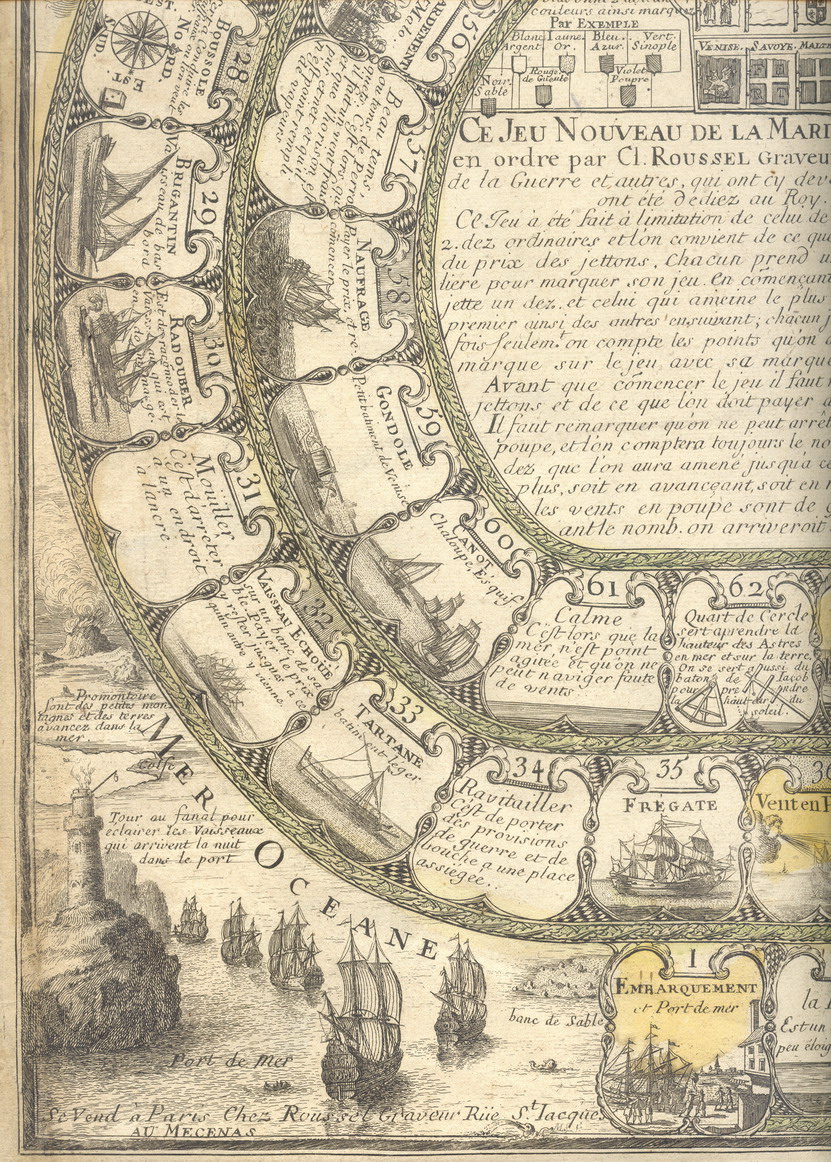 couleurs ainsi marquez
Par EXEMPLE
Blanc Iaune Bleu. Vert.
Argent. Or. Azur. Sinople
Noir. Rouge Violet
Sable de Gueule Poupre
VENISE. SAVOYE. MALTE
CE JEU NOUVEAU DE LA MARI
en ordre par Cl. ROUSSEL Graveur
de la Guerre et autres, qui ont cy dev
ont été dediez au Roy.
Ce Jeu à été fait à limitation de celui de
2. dez ordinaires et l'on convient de ce qu
du prix des jettons. Chacun prend u
liere pour marquer son jeu. En cõmençant
jette un dez, et celui qui ameine le plus
premier ainsi des autres ensuivant; chacun j
fois seulem. on compte les points qu'on a
marque sur le jeu avec sa marque
Avant que cõmencer le jeu il faut
jettons et de ce que l'on doit payer a
Il faut remarquer qu'on ne peut arrêt
poupe, et l'on comptera toujours le no
dez que l'on aura amené jusqu'a ce
plus, soit en avançeant, soit en r
les vents en poupe sont de 9
ant le nomb. on arriveroit
28
BOUSSOLE
NORD
EST.
SUD
29
BRIGANTIN
Vaisseau de bas
bord
30
RADOUBER
Est de racomoder les
Vaisseaux qui ont
du domage
31
Moüiller
C'est d'arrêter
à un endroit
à l'ancre
32
VAISSEAU ECHOUÉ
sur un banc de sa
ble. Payer le prix
rester jusques à ce
qu'un autre y vienne.
33
TARTANE
batiment leger
34
Ravitailler
C'est de porter
des provisions
de guerre et de
bouche a une place
assiegée.
35
FRÉGATE
36
Vent en P
56
57
Beau tems
58
NAUFRAGE
Payer le prix, et re
cõmencer
59
GONDOLE
Petit batiment de Venise
60
CANOT,
Chaloupe, Esquif
61
Calme
C'est lors que la
mer n'est point
agitée et qu'on ne
peut naviger faute
de vents
62
Quart de Cercle
sert aprendre la
hauteur des Astres
en mer et sur la terre.
On se sert aussi du
baton de Iacob
pour pre ndre
la hauteur du
soleil.
Promontoire
sont des petites mon
tagnes et des terres
avancez dans la
mer.
Golfe
MER OCEANE
Tour au fanal pour
éclairer les Vaisseaux
qui arrivent la nuit
dans le port
banc de Sable
Port de mer
1
EMBARQUEMENT
et Port de mer
la
Est un
peu éloig
Se Vend à Paris Chez Roussel Graveur Rüe St. Iacque
AU MECENAS